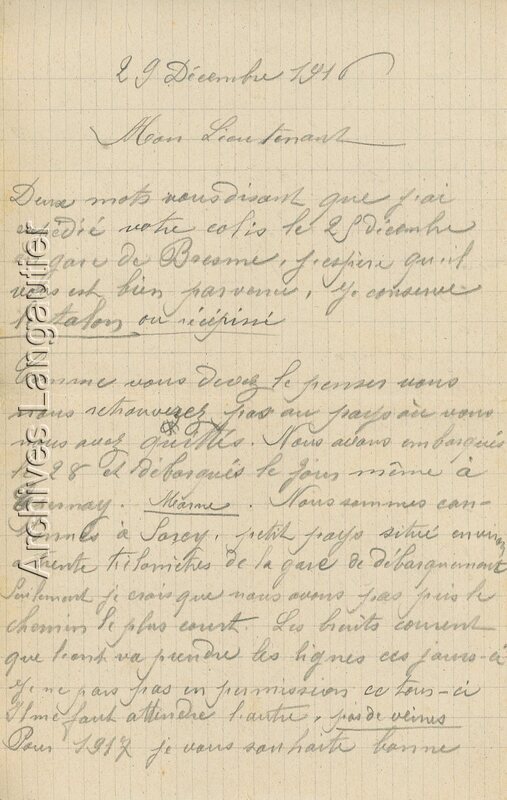 29 Décembre 1916
Mon Lieutenant
Deux mots vous disant que j'ai
expédié votre colis le 25 décembre
gare de Bresme, j'espere qu'il
vous est bien parvenu, je conserve
le talon ou récépissé
Comme vous devez le penser vous
nous retrouverez pas au pays où vous
nous avez quittés. Nous avons embarqués
le 28 et débarqués le jour même à
Epernay. Marne. Nous sommes can-
tonnés à Sarcy, petit pays situé environ
a trente kilomètres de la gare de débarquement
Seulement je crois que nous avons pas pris le
chemin le plus court. Les bruits courent
que l'ont va prendre les lignes ces jours-ci
Je ne pars pas en permission ce tour-ci
Il me faut attendre l'autre, pas de veines
Pour 1917 je vous souhaite bonne
Archives Langauffer